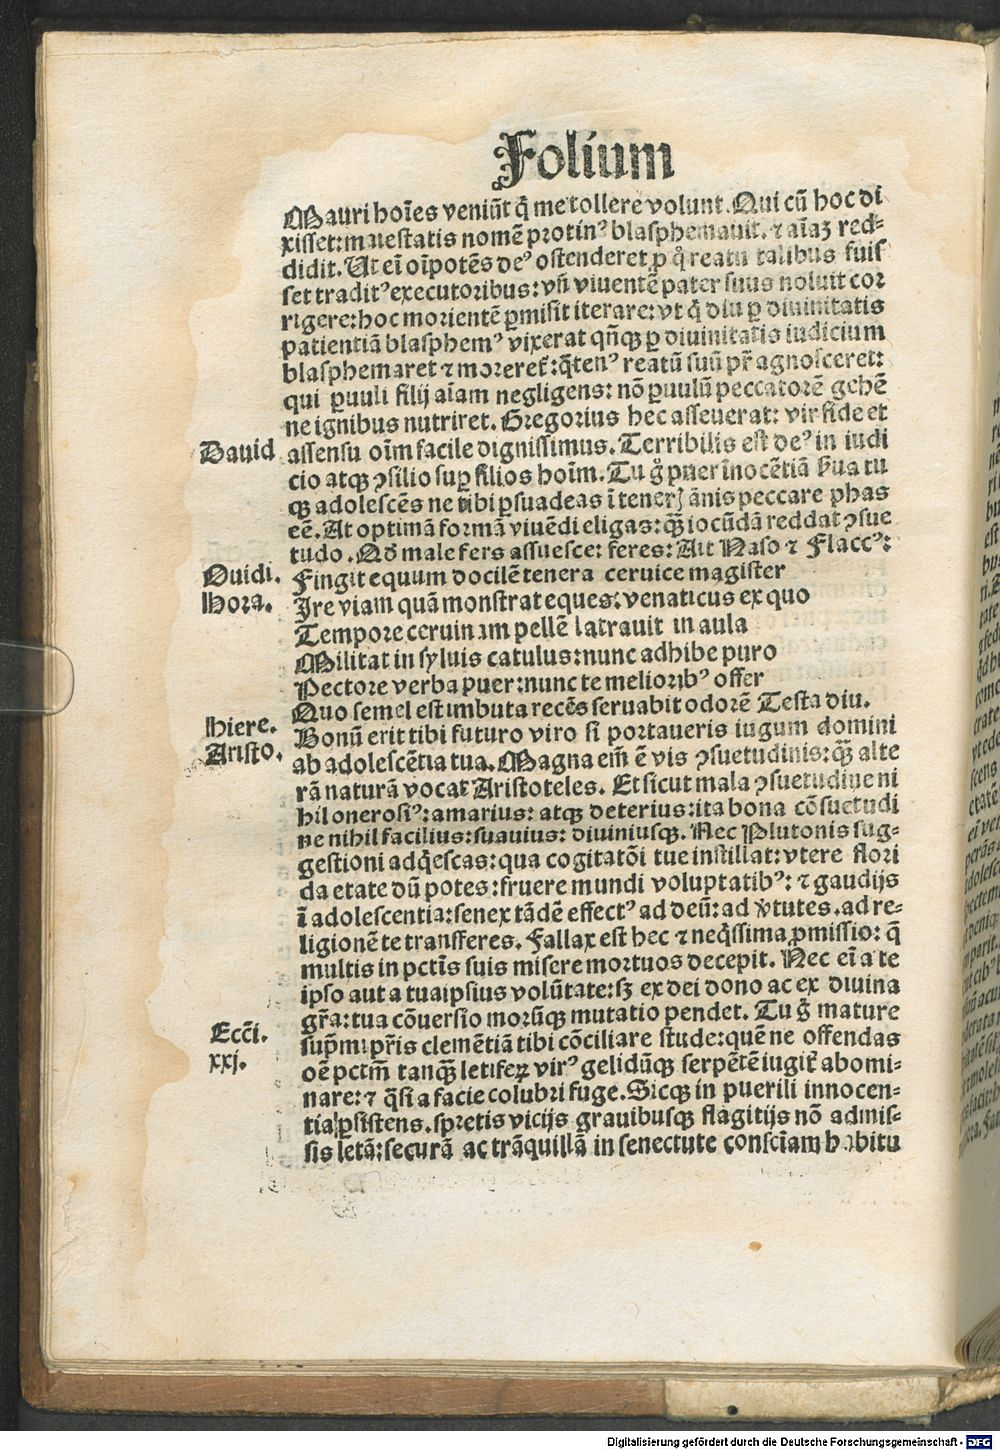 Folium
Mauri hoīes veniūt q̄ me tollere volunt. Qui cū hoc di
xisset: maiestatis nomē protin⁹ blasphemauit. ⁊ aīaꝫ red-
didit. Ut eī oīpotēs de⁹ ostenderet ꝓ q̊ reatu talibus fuis
set tradit⁹ executoribus: vñ viuentē pater suus noluit cor
rigere: hoc morientē ꝑmisit iterare: vt q̇ diu ꝑ diuinitatis
patientiā blasphem⁹ vixerat qn̄qꝫ ꝑ diuinitatis iudicium
blasphemaret ⁊ moreret̃: q̄ten⁹ reatū suū pr̄ agnosceret:
qui ꝑuuli filij aīam negligens: nō ꝑuulū peccatorē gehē
ne ignibus nutriret. Gregorius hec asseuerat: vir fide et
Dauid assensu oīm facile dignissimus. Terribilis est de⁹ in iudi
cio atqꝫ ꝯsilio suꝑ filios hoīm. Tu g̊ puer īnocētiā ẜua tu
qꝫ adolescēs ne tibi ꝑsuadeas ī teneꝝ ānis peccare ꝓhas
eē. At optimā formā viuēdi eligas: qꝫ̄ iocūdā reddat ꝯsue
tudo. Qd̄ male fers assuesce: feres: Ait Naso ⁊ Flacc⁹:
Ouidi. Fingit equum docilē tenera ceruice magister
Hora. Ire viam quā monstrat eques: venaticus ex quo
Tempore ceruinam pellē latrauit in aula
Militat in syluis catulus: nunc adhibe puro
Pectore verba puer: nunc te meliorib⁹ offer
Quo semel est imbuta recēs seruabit odorē Testa diu.
Hiere. Bonū erit tibi futuro viro si portaueris iugum domini
Aristo. ab adolescētia tua. Magna em̄ ē vis ꝯsuetudinis: qꝫ̄ alte
rā naturā vocat Aristoteles. Et sicut mala ꝯsuetudine ni
hil onerosi⁹: amarius: atqꝫ deterius: ita bona cōsuetudi
ne nihil facilius: suauius: diuiniusqꝫ. Nec Plutonis sug-
gestioni adq̇escas: qua cogitatōi tue instillat: vtere flori
da etate dū potes: fruere mundi voluptatib⁹: ⁊ gaudijs
ī adolescentia: senex tādē effect⁹ ad deū: ad v̓tutes. ad re-
ligionē te transferes. Fallax est hec ⁊ neq̇ssima ꝓmissio: q̄
multis in pctīs suis misere mortuos decepit. Nec eī a te
ipso aut a tuaipsius volūtate: sꝫ ex dei dono ac ex diuina
gr̄a: tua cōuersio morūqꝫ mutatio pendet. Tu g̊ mature
Ecc̄i. sup̄mi pr̄is clemētiā tibi cōciliare stude: quē ne offendas
xxj. oē pctm̄ tanqꝫ̄ letifeꝝ vir⁹ gelidūqꝫ serpētē iugit̃ abomi-
nare: ⁊ q̄si a facie colubri fuge. Sicqꝫ in puerili innocen-
tia ꝑsistens. spretis vicijs grauibusqꝫ flagitijs nō admis-
sis letā: securā ac trāquillā in senectute consciam habitu
Digitalisierung gefördert durch die Deutsche Forschungsgemeinschaft - DFG